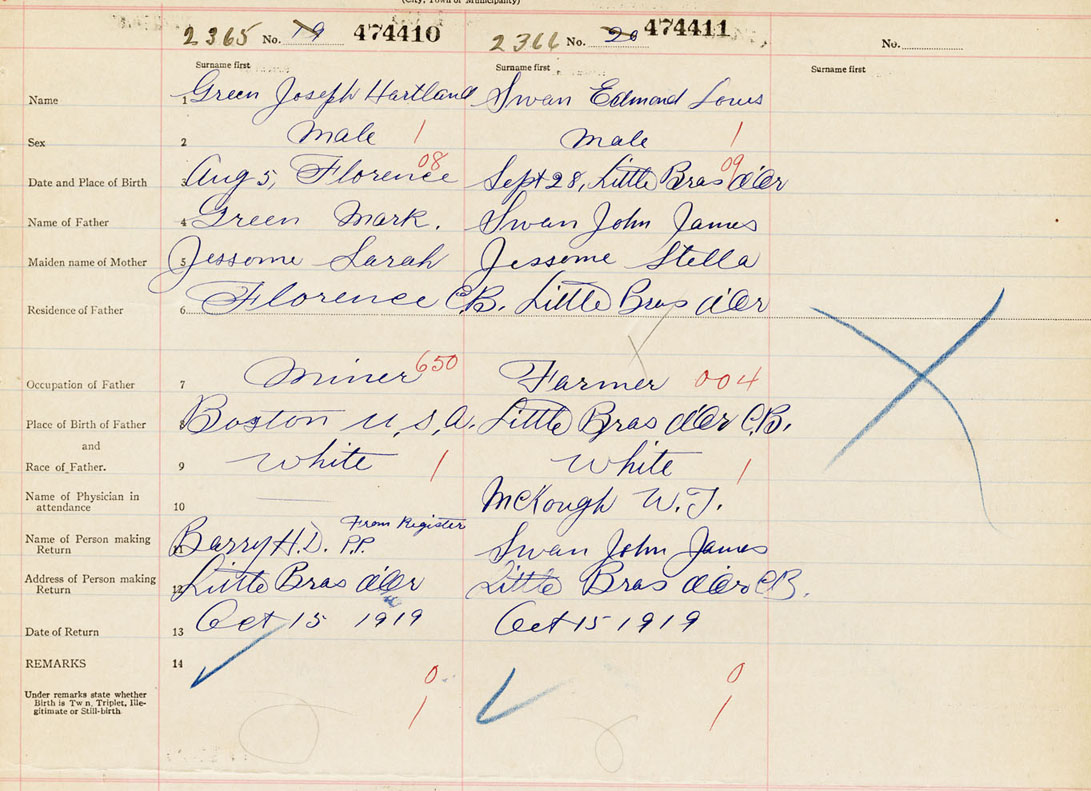 (City, Town or Municipality)
2365 No. 19 474410 2366 No. 20 474411 No.
Surname first Surname first Surname first
Name 1 Green Joseph Hartland Swan Edmond Louis
Sex 2 Male 1 Male 1
08 09
Date and Place of Birth 3 Aug 5, Florence Sept 28, Little Bras d'Or
Name of Father 4 Green Mark. Swan John James
Maiden name of Mother 5 Jessome Sarah Jessome Stella
Residence of Father 6 Florence C.B. Little Bras d'Or
Occupation of Father 7 Miner 650 Farmer 004
Place of Birth of Father 8 Boston U.S.A. Little Bras d'Or C.B.
and
Race of Father. 9 White 1 White 1
Name of Physician in
attendance 10 McKough W.J.
From Register
Name of Person making
Return 11 Barry H.D. P.P. Swan John James
Address of Person making
Return 12 Little Bras d'Or Little Bras d'Or C.B.
Date of Return 13 Oct 15 1919 Oct 15 1919
REMARKS 14
0 0
Under remarks state whether
Birth is Tw n, Triplet, Ille-
gitimate or Still-birth
1 1